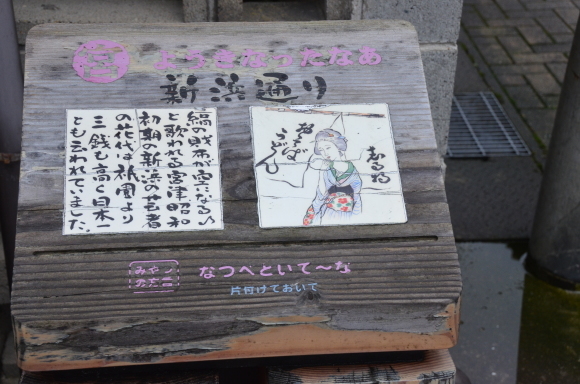 ようきなったなあ
新浜通り
縞の財布が空になるい
と歌われる宮津昭和
初期の新浜の芸者
の花代は祇園より
三銭も高く日本一
とも云われていました。
おちょぼ
うどん
みやづ
お六言
なつべといて～な
片付けておいて